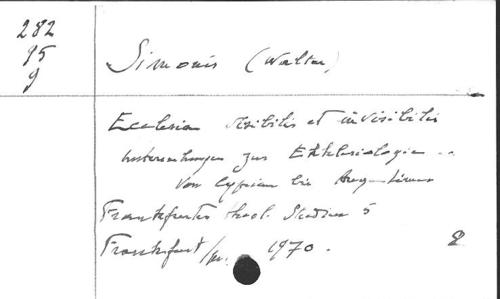 282
95
9
Simonis (Walter)
Ecclesia visibilis et invisibilis
Untersuchungen zur Ekklesiologie ...
von Cyprian bis Augustinus
Frankfurter theol. Studien 5
Frankfurt/M. 1970.